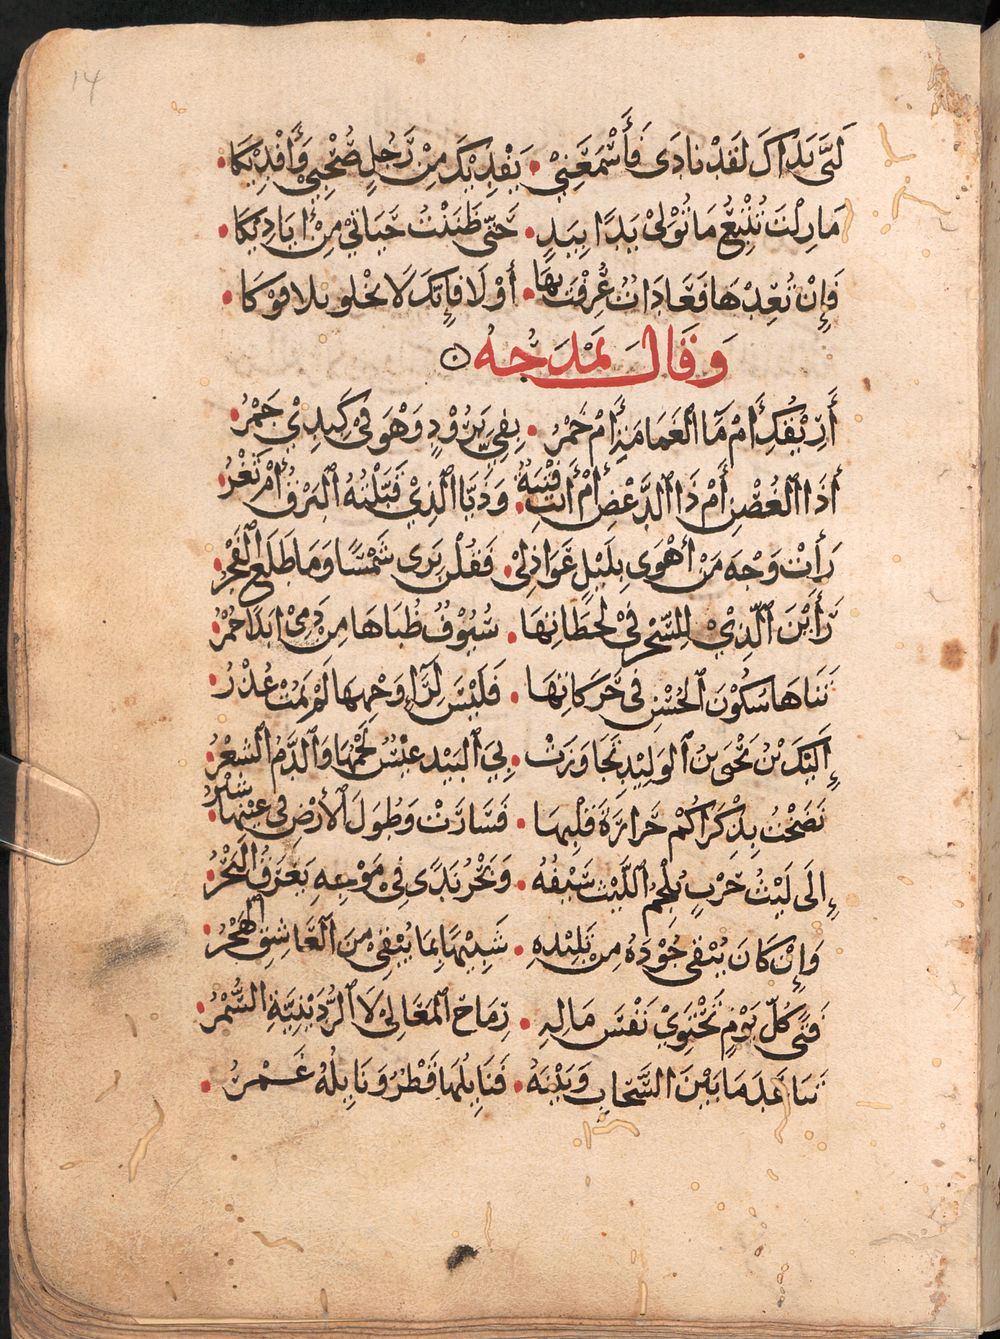 ١٤
لَبَّى نَدَاكَ لَقَدْ نَادَى فَأَسْمَعَنِيْ • يَفْدِيْكَ مِنْ رَّجُلٍ صُحْبِيْ وَأَفْدِيْكَا •
مَا زِلْتَ تُتْبِعُ مَا تُوْلِيْ يَدًا بِيَدٍ • حَتّى ظَنَنْتُ حَيَاتِيْ مِنْ أيَادِيْكَا •
فَإِنْ تُعِدْهَا فَعَادَاتٌ عُرِفْتَ بِهَا • أوْ لَا فَإِنَّكَ لَا يَخْلُو بِلَا فُوْكَا •
وَقَالَ يَمْدَحُهُ
أَرِيْقُكِ أَمْ مَّا الْغَمَامَةِ أَمْ خَمْرُ • بِفِيَّ بَرُوْدٍ وَهْوَ فِيْ كَبِدِيْ جَمْرُ •
أَذَا الْغُصْنِ أَمْ ذَا الدِّعْصِ أَمْ أَنْتِ فِتْنَةٌ • وَذَيَّا الَّذِيْ قَبَّلْتُهُ الْبَرْقُ أَمْ ثَغْرُ •
رَأَتْ وَجْهَ مَنْ أَهْوَى بِلَيْلٍ عَوَاذِلِيْ • فَقُلْنَ نَرى شَمْسًا وَمَا طَلَعَ الْفَجْرُ •
رَأَيْنَ الَّذِيْ لِلسِّحْرِ فِيْ لَحَظَاتِهَا • سُيُوْفٌ ظُبَاهَا مِنْ دَمِيْ ابَدًا حُمْرُ •
تَنَاهَا سُكُوْنَ الْحُسْنِ فِيْ حَرَكَاتِهَا • فَلَيْسَ لِرَاءٍ وَجْهِهَا لَمْ يَمُتْ عُذْرُ •
إِلَيْكَ بْنَ يَحْيَى بْنِ الْوَلِيْدِ تَجَاوَزَتْ • بِيَ الْبِيْدَ عِيْسٌ لَحْمُهَا وَالدَّمُ الشِّعْرُ •
نَضَحْتُ بِذِكْرَاكُمْ حَرَارَةَ قَلْبِهَا • فَسَارَتْ وَطُوْلُ الْأَرْضِ فِيْ عَيْنِهَا شِبْرُ •
إِلَى لَيْثِ حَرْبٍ يُلْحِمُ اللَّيْثَ سَيْفُهُ • وَبَحْرِ نَدًى فِيْ مَوْجِهِ يَغْرَقُ الْبَحْرُ •
وَإِنْ كَانَ يُبْقِيْ جُوْدُهُ مِنْ تَلِيْدِهِ • شَبِيْهًا بِمَا يُبْقِيْ مِنَ الْعَاشِقِ الْهَجْرُ •
فَتًى كُلَّ يَوْمٍ تَحْتَوِيْ نَفْسَ مَالِهِ • رِمَاحُ الْمَعَالِيْ لَا الرُّدَيْنِيَّةُ السُّمْرُ •
تَبَاعَدَ مَا بَيْنَ السَّحَابِ وَبَيْنَهُ • فَنَائِلُهَا قَطْرٌ وَنَائِلُهُ غَمْرُ •